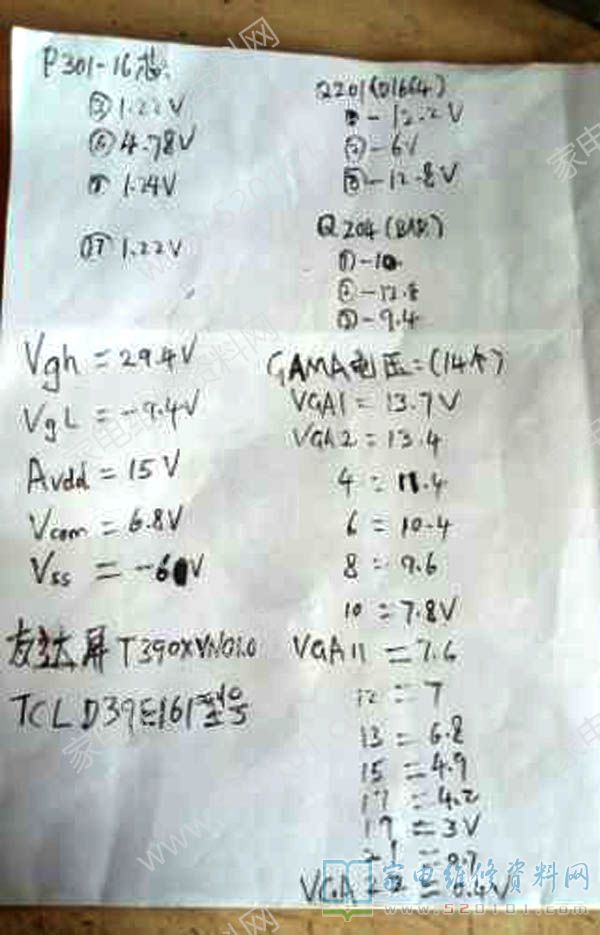 P301-16芯
③ 1.22V
⑥ 4.78V
1.24V
⑰ 1.22V
Q201(D1664)
-12.2V
②-6V
③-12.8V
Q204(BAV)
①-10
②-12.8
③-9.4
Vgh=29.4V
VgL=-9.4V
Avdd=15V
Vcom=6.8V
Vss=-6V
友达屏T390XVN01.0
TCL D39E161型号
GAMA电压=(14个)
VGA1=13.7V
VGA2=13.4
4=11.4
6=10.4
8=9.6
10=7.8V
VGA11=7.6
12=7
13=6.8
15=4.9
17=4.2
19=3V
VGA
家电维修资料网
www.520101.com